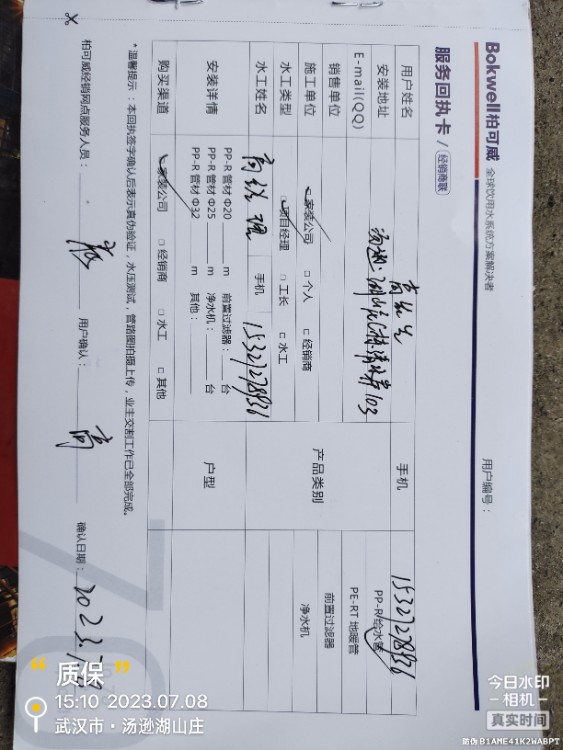 Bokwell柏可威 全球饮用水系统方案解决者
服务回执卡 / 经销商联
用户编号：
用户姓名 高先生 手机 15327278936
安装地址 汤逊湖
E-mail(QQ)
销售单位
施工单位 □家装公司 □个人 □经销商
水工类型 □项目经理 □工长 □水工
水工姓名 高 手机 15327278936
产品类别 PP-R/给水管
PE-RT 地暖管
前置过滤器
净水机
安装详情 PP-R 管材 Φ20 m 前置过滤器： 台
PP-R 管材 Φ25 m 净水机： 台
PP-R 管材 Φ32 m 其他：
户型
购买渠道 □家装公司 □经销商 □水工 □其他
*温馨提示：本回执签字确认后表示真伪验证，水压测试，管路图拍摄上传，业主交割工作已全部完成。
柏可威经销网点服务人员： 用户确认： 高 确认日期： 2023.7.
“ 质保 ”
15:10 2023.07.08
武汉市·汤逊湖山庄
今日水印
-相机-
真实时间
防伪 B1AME41K2WABPT